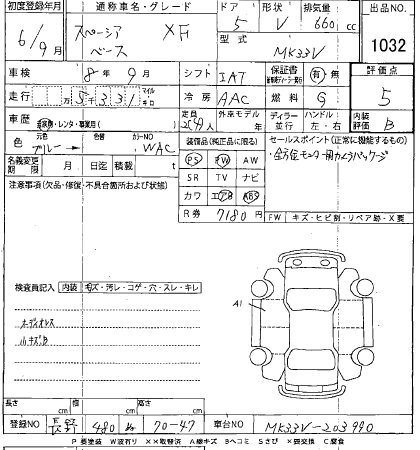 初度登録年月 通称車名・グレード ドア 形状 排気量 出品NO.
6/9月 スペーシア ベース XF 5 V 660 cc 1032
型式 MK33V
車検 8年9月 シフト IAT 保証書 有・無 評価点 5
走行 万 5331 マイル キロ 冷房 AAC 燃料 G
車歴 自家用・レンタ・事業用( ) 定員 2(4)人 外来モデル 年 ディーラー 並行 ハンドル 左・右 内装評価 B
色 元色 ブルー→ 色替 カラーNO WAC 装備品(純正品に限る) セールスポイント(正常に機能するもの)
名義変更期限 月 日迄 積載 t PS PW AW ・全方位モニター用カメラパッケージ
注意事項(欠品・修復・不具合箇所および状態) SR TV ナビ
カワ エアB ABS
R券 7180円 FW キズ・ヒビ割・リペア跡・X要
検査員記入 内装 キズ・汚レ・コゲ・穴・スレ・キレ
A1
オーディオレス
小キズB
長さ cm 幅 cm 高さ cm
登録NO 480 70-47 車台NO MK33V-203990
P要塗装 W波有り XX取替済 A線キズ Bヘコミ Sさび X要交換 C腐食